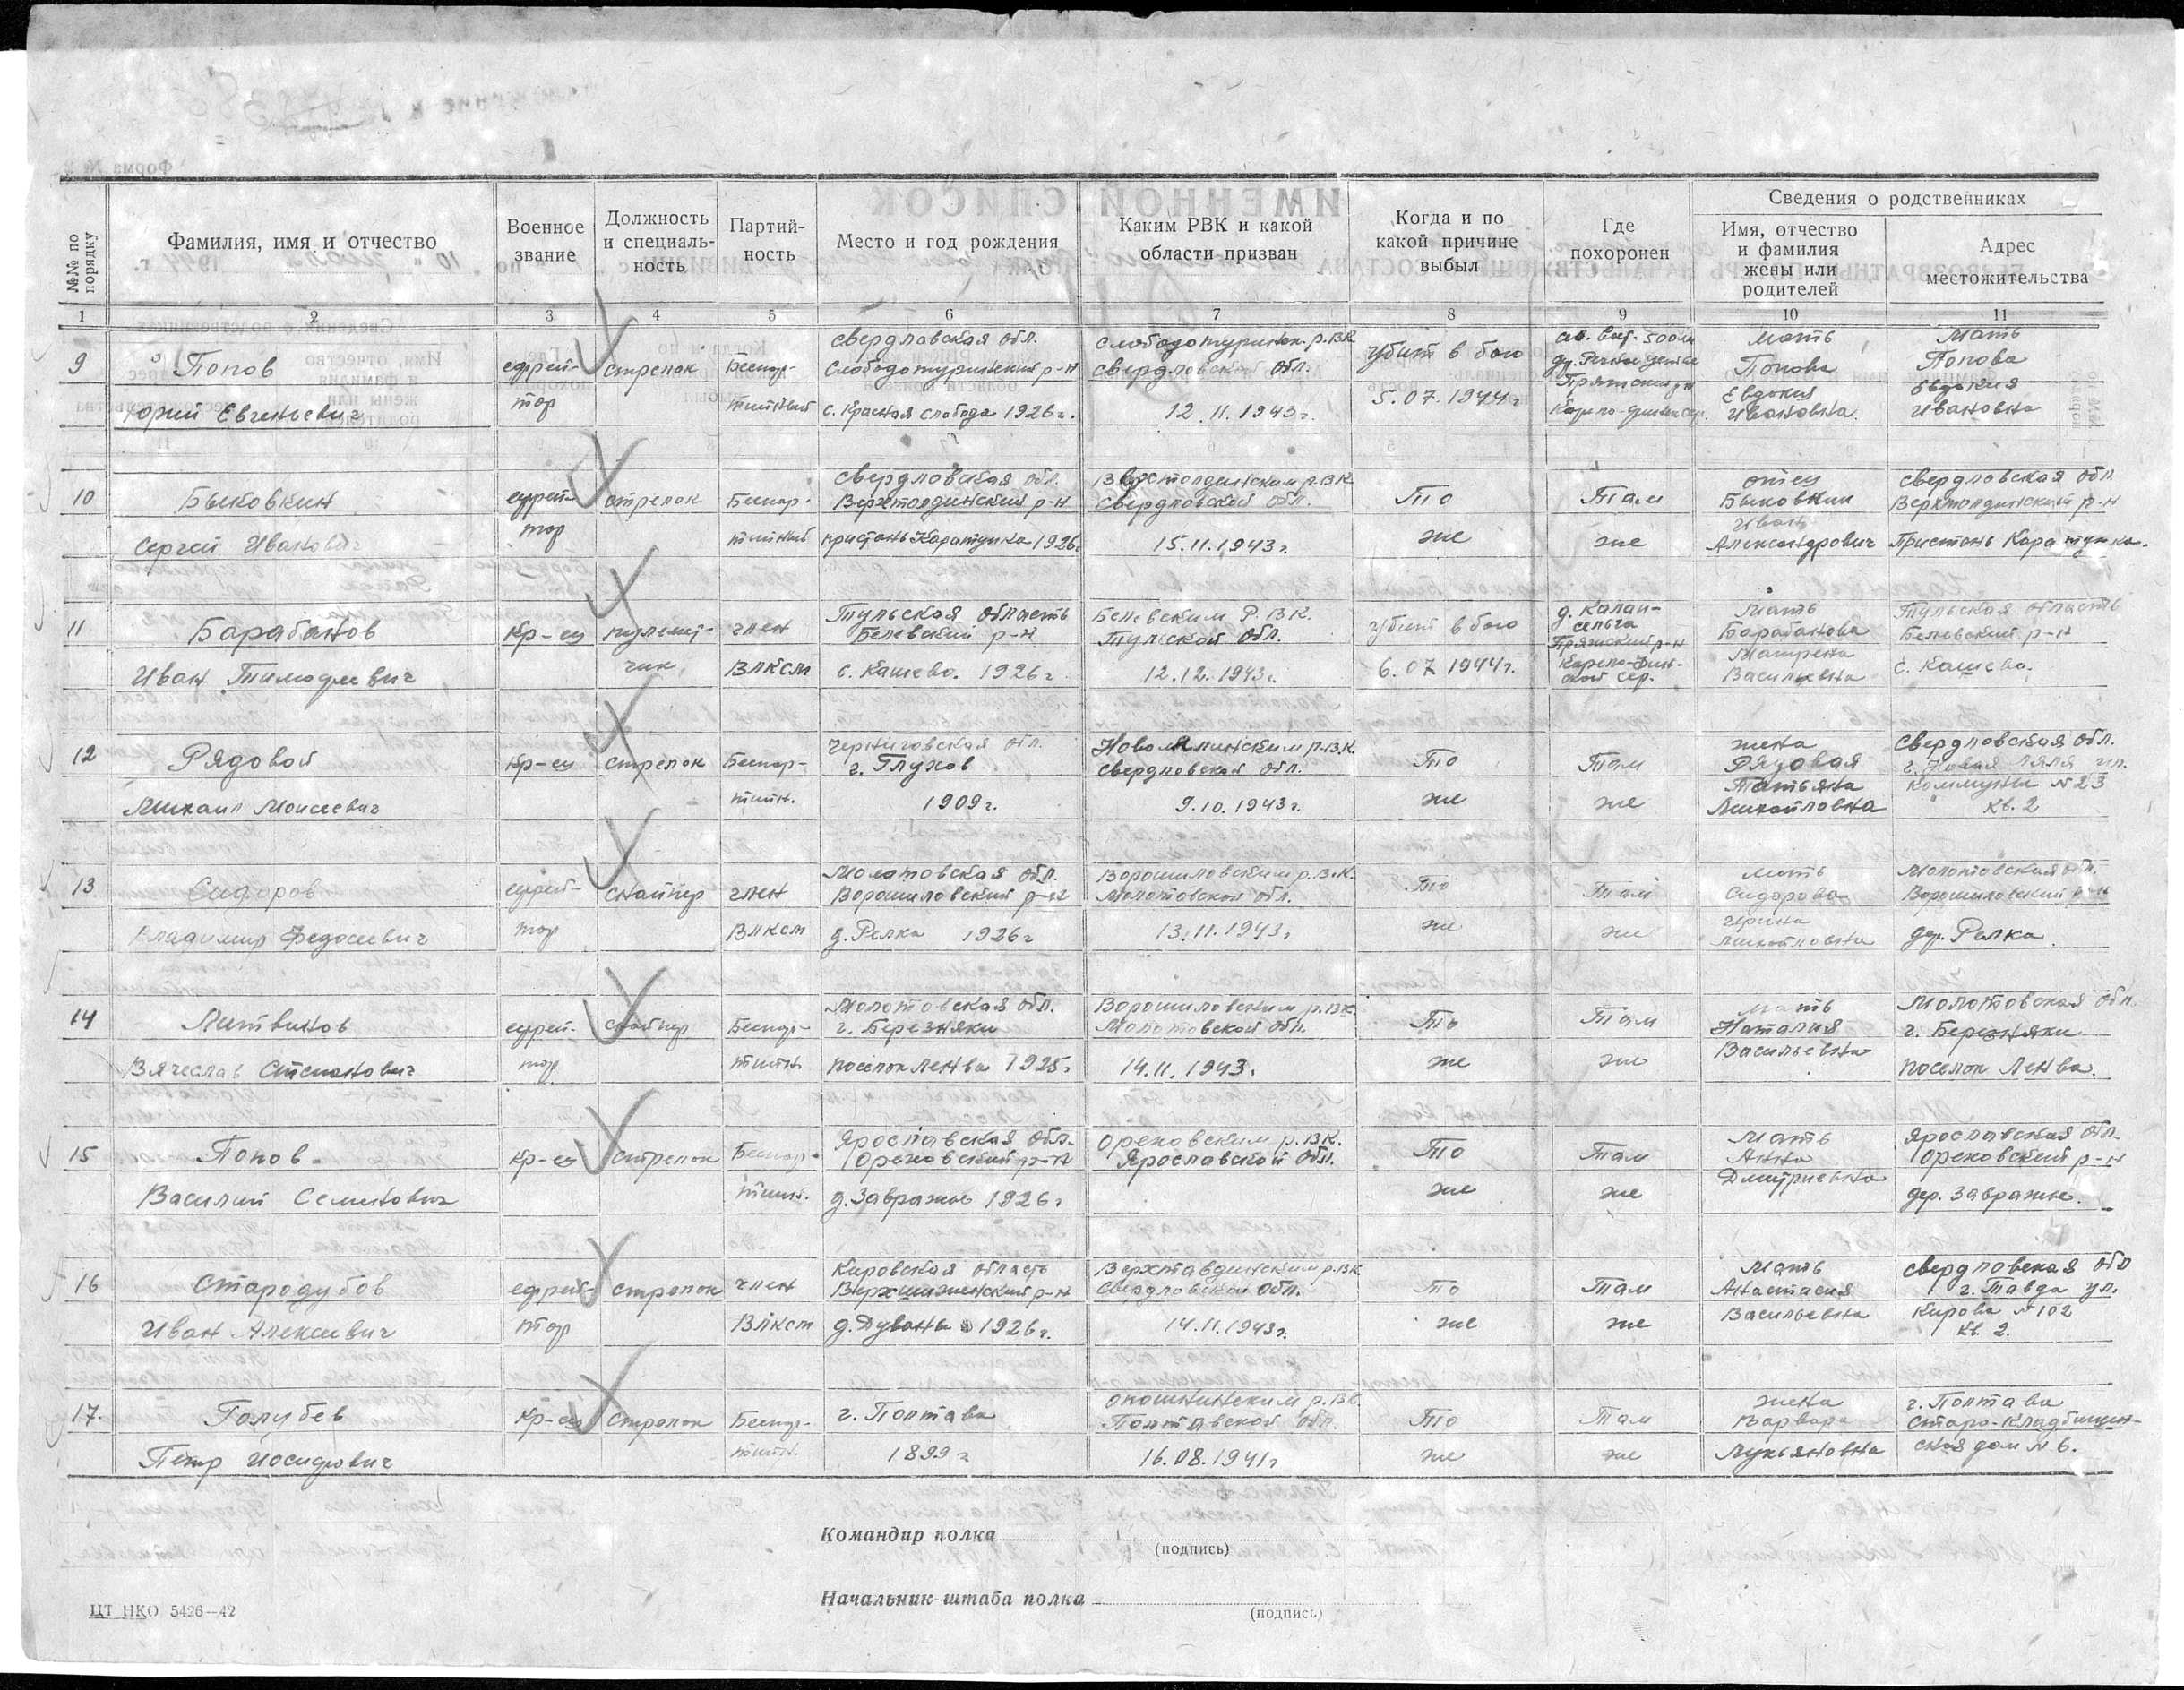 №№ по порядку
Фамилия, имя и отчество
Военное звание
Должность и специаль-ность
Партий-ность
Место и год рождения
Каким РВК и какой области призван
Когда и по какой причине выбыл
Где похоронен
Сведения о родственниках
Имя, отчество и фамилия жены или родителей
Адрес местожительства
1 2 3 4 5 6 7 8 9 10 11
свердловская обл. Слободотуринск. р.вк мать Мать
9 Попов ефрей- стрелок Беспар- Слободотуринский р-н свердловской обл. убит в бою Попова Попова
Юрий Евгеньевич тор тийный с. Красная слобода 1926г. 12.11.1943г. 5.07.1944г Евдокия Ивановна Евдокия Ивановна
свердловская обл. р.вк отец свердловская обл.
10 Быковкин ефрей- стрелок Беспар- р-н свердловской обл. То Там Быковкин р-н
Сергей Иванович тор тийный пристань Каратунка 1926г 15.11.1943г. же же Иван Александрович Пристань Каратунка.
Тульская область Белевским Р.ВК. д. Мать Тульская область
11 Барабанов кр-ец пулемет- член Белевский р-н Тульской обл. убит в бою Пряжский р-н Барабанова Белевский р-н
Иван Тимофеевич чик ВЛКСМ с. Кашево. 1926г 12.12.1943г. 6.07.1944г. Карело-Фин-ской сер. Матрена Васильевна с. Кашева.
Черниговская обл. Новолялинским р.вк. жена Свердловская обл.
12 Рядовой кр-ец стрелок Беспар- г. Глухов Свердловской обл. То Там Рядовая г. Новая Ляля ул.
Михаил Моисеевич тийн. 1909г. 9.10.1943г. же же Татьяна Михайловна Коммуны №23 кв. 2
Молотовская обл. Ворошиловским р.в.к. мать Молотовская обл.
13 Сидоров ефрей- снайпер член Ворошиловский р-н Молотовской обл. То Там Сидорова Ворошиловский р-н
Владимир Федосеевич тор ВЛКСМ д. Релка 1926г 13.11.1943г же же Ирина Михайловна дер. Релка
Молотовская обл. Ворошиловским р.вк. мать Молотовская обл.
14 Литвинов ефрей- снайпер Беспар- г. Березняки Молотовской обл. То Там Наталия г. Березняки
Вячеслав Степанович тор тийн. поселок Ленва 1925г 14.11.1943г же же Васильевна поселок Ленва.
Ярославская обл. Ореховским р.вк. Мать Ярославская обл.
15 Попов кр-ец стрелок Беспар- Ореховский р-н Ярославской обл. То Там Анна Ореховский р-н
Василий Семенович тийн. д. Завражье 1926г же же Дмитриевна дер. Завражье.
Кировская область Верхтавдинским р.вк Мать свердловская обл
16 Стародубов ефрей- стрелок член р-н Свердловской обл. То Там Анастасия г. Тавда ул.
Иван Алексеевич тор ВЛКСМ 1926г. 14.11.1943г. же же Васильевна Кирова №102 кв. 2.
р.вк. жена г. Полтава
17. Голубев кр-ец стрелок Беспар- г. Полтава Полтавской обл. То Там Варвара Старо-Кладбищен-
Петр Иосифович тийн. 1899г 16.08.1941г же же Лукьяновна ская дом №6.
Командир полка
(подпись)
Начальник штаба полка
(подпись)
ЦТ НКО 5426—42